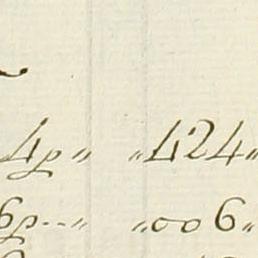 4p〃 〃424〃
6p--〃 〃006〃